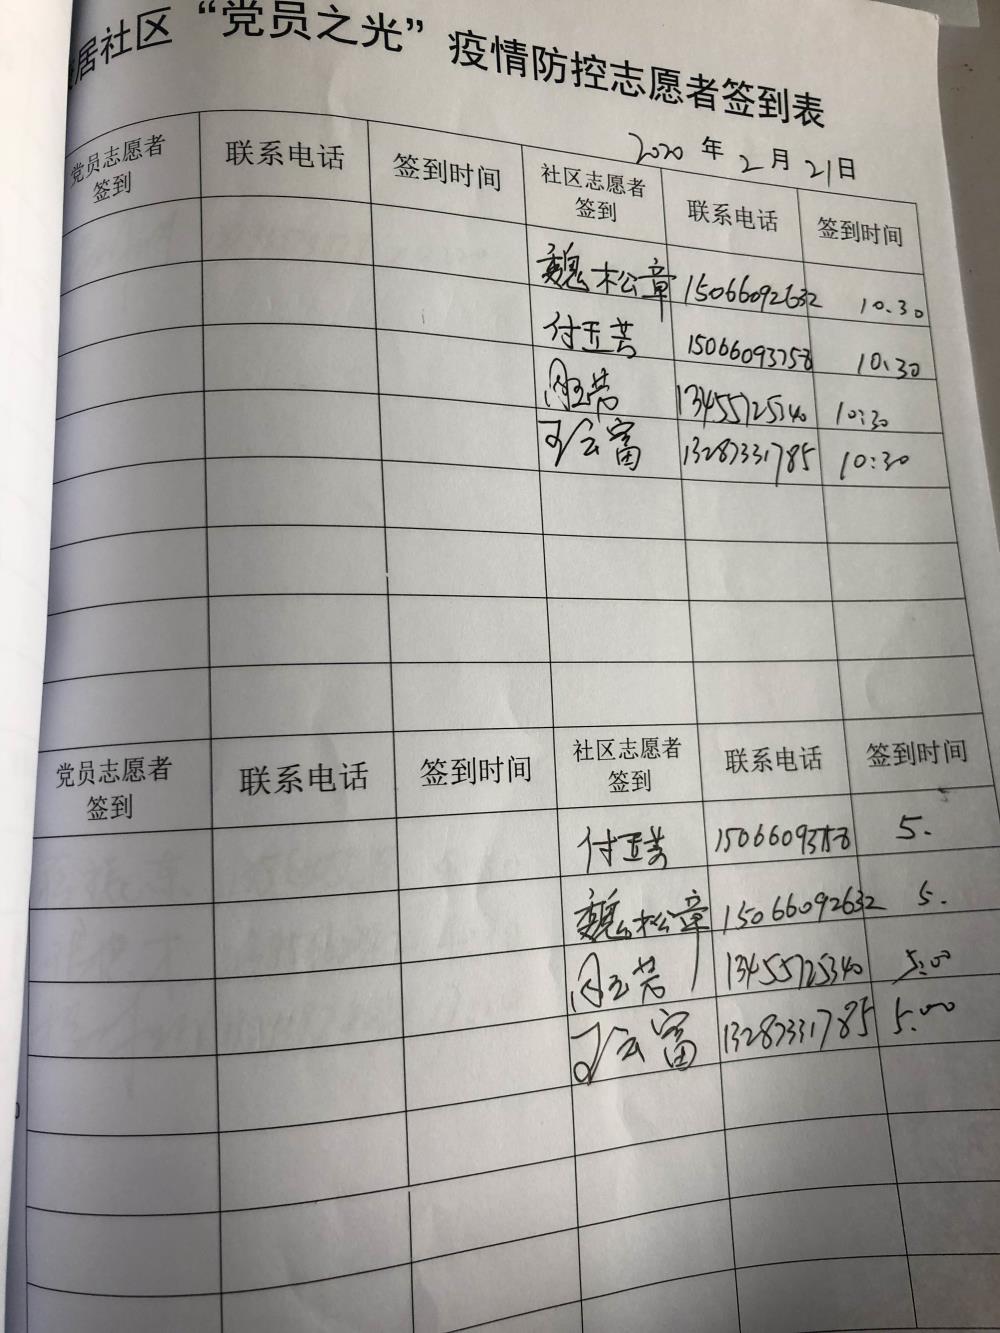 居社区“党员之光”疫情防控志愿者签到表
2020 年 2 月 21日
党员志愿者签到 联系电话 签到时间 社区志愿者签到 联系电话 签到时间
魏松章 15066092632 10.30
付玉芳 15066093758 10:30
周玉芳 13455725340 10:30
云富 13287331785 10:30
党员志愿者签到 联系电话 签到时间 社区志愿者签到 联系电话 签到时间
付玉芳 15066093758 5.
魏松章 15066092632 5.
周玉芳 13455725340 5:00
云富 13287331785 5:00